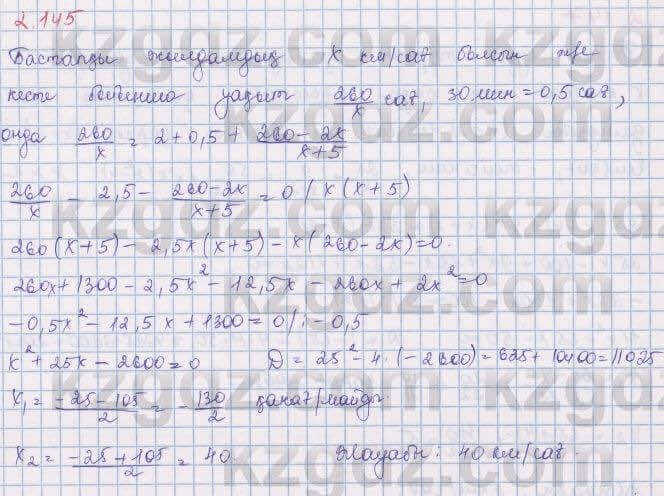 2.145
Бастапқы жылдамдық x км/сағ болсын және
кесте бойынша уақыт 260/x сағ, 30 мин = 0,5 сағ,
онда 260/x = 2 + 0,5 + (260 - 2x)/(x + 5)
260/x - 2,5 - (260 - 2x)/(x + 5) = 0 / x(x + 5)
260(x + 5) - 2,5x(x + 5) - x(260 - 2x) = 0.
260x + 1300 - 2,5x² - 12,5x - 260x + 2x² = 0
-0,5x² - 12,5x + 1300 = 0 / : -0,5
x² + 25x - 2600 = 0 D = 25² - 4·(-2600) = 625 + 10400 = 11025
x₁ = (-25 - 105)/2 = -130/2 қанағ/майды
x₂ = (-25 + 105)/2 = 40 Жауабы: 40 км/сағ.
kzgdz.com